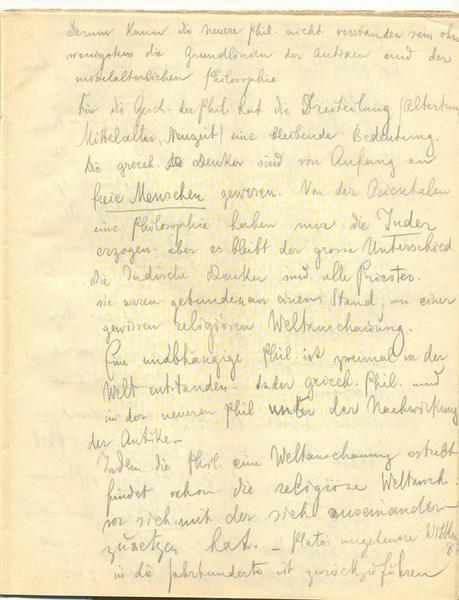 Darum kann die neuere Phil. nicht verstanden sein ohne
wenigstens die Grundlinien der Antiken und der
mittelalterlichen Philosophie
Für die Gesch. der Phil. hat die Dreiteilung (Altertum
Mittelalter, Neuzeit) eine bleibende Bedeutung.
Die griech. Denker sind von Anfang an
freie Menschen gewesen. Von der Orientalen
eine Philosophie haben nur die Inder
erzogen. aber es bleibt der grosse Unterschied
die Indische Denker sind alle Priester.
sie waren gebunden an einem Stand, an einer
gewissen religiösen Weltanschauung.
Eine unabhängige Phil. ist zweimal in der
Welt entstanden. In der griech. Phil. und
in der neueren Phil unter der Nachwirkung
der Antike -
Indem die Phil. eine Weltanschauung erstrebt
findet schon die religiöse Weltansch.
vor sich mit der sich auseinander-
zusetzen hat. - Platos ungeheure
in die Jahrhunderte ist zurückzuführen